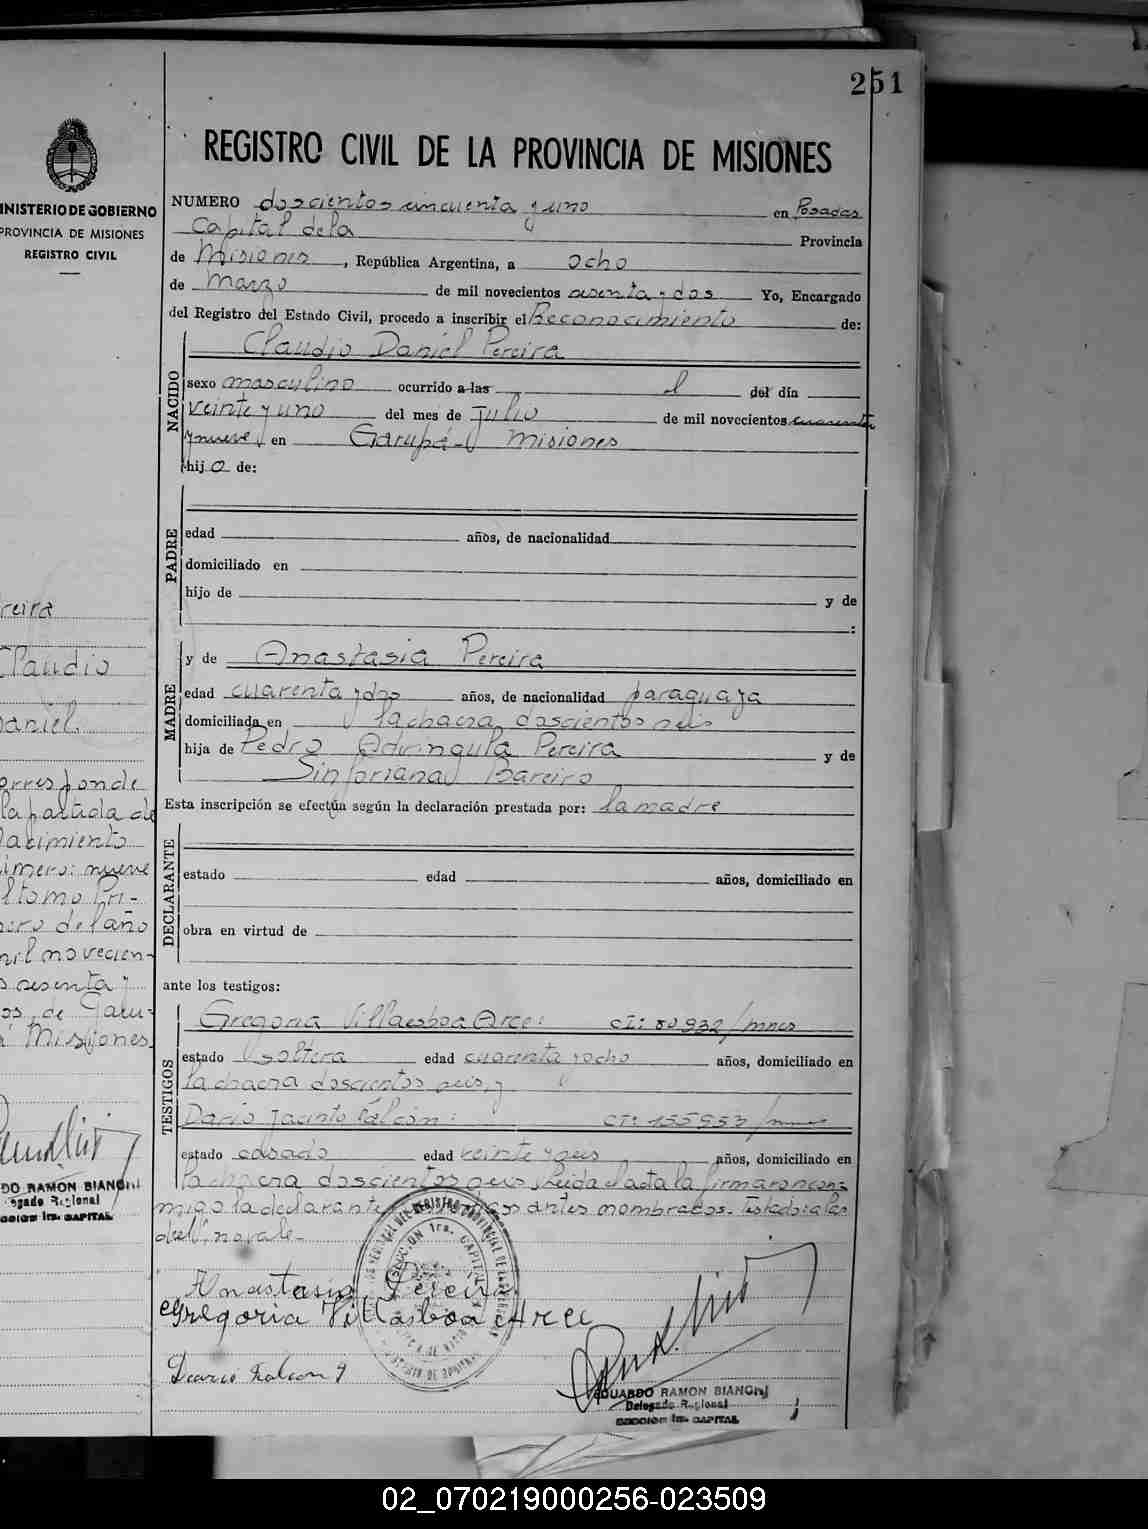 251
MINISTERIO DE GOBIERNO
PROVINCIA DE MISIONES
REGISTRO CIVIL
reira
Claudio
Daniel.
orresponde
la partida de
Nacimiento
nueve
l tomo Pri-
mero del año
mil novecien-
sesenta y
os, de Garu-
Misiones
DO RAMON BIANCHI
Delegado Regional
SECCION 1ra. CAPITAL
REGISTRO CIVIL DE LA PROVINCIA DE MISIONES
NUMERO doscientos cincuenta y uno en Posadas
Capital de la Provincia
de Misiones, República Argentina, a ocho
de Marzo de mil novecientos sesenta y dos Yo, Encargado
del Registro del Estado Civil, procedo a inscribir el Reconocimiento de:
Claudio Daniel Pereira
NACIDO
sexo masculino ocurrido a las del día
veinte y uno del mes de Julio de mil novecientos cuarenta
y nueve, en Garupá- Misiones
hijo de:
PADRE
edad años, de nacionalidad
domiciliado en
hijo de y de
:
MADRE
y de Anastasia Pereira
edad cuarenta y dos años, de nacionalidad paraguaya
domiciliada en la chacra doscientos seis
hija de Pedro Pereira y de
Sinforiana Bareiro
Esta inscripción se efectúa según la declaración prestada por: la madre
DECLARANTE
estado edad años, domiciliado en
obra en virtud de
ante los testigos:
TESTIGOS
Gregoria Villasboa Arce: CI: 80932/mnes
estado soltera edad cuarenta y ocho años, domiciliado en
la chacra doscientos seis, y
Dario Jacinto Falcón: CI: 155953/
estado casado edad veinte y seis años, domiciliado en
la chacra doscientos seis Leida el acta la firmaron con-
migo la declarante antes nombrados. Testado: a las
del, no vale-
Anastasia Pereira
Gregoria Villasboa Arce
Dario Falcon
EDUARDO RAMON BIANCHI
Delegado Regional
SECCION 1ra. CAPITAL
02_070219000256-023509